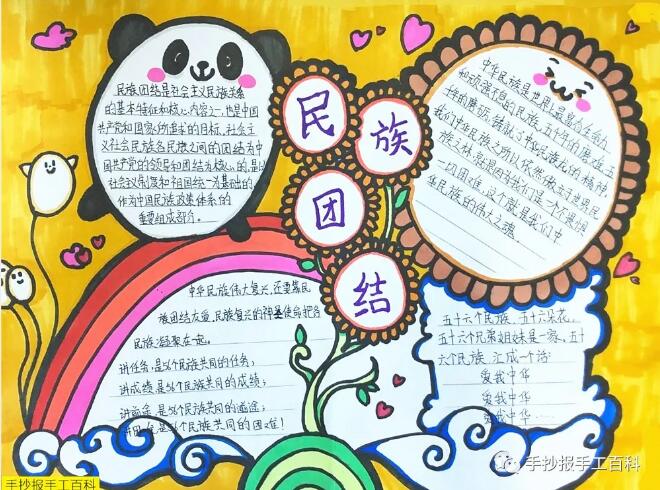 民族团结
民族团结是社会主义民族关系
的基本特征和核心内容之一,也是中国
共产党和国家所追求的目标,社会主
义社会民族各民族之间的团结为中
国共产党的领导和团结为核心的,是以
社会主义制度和祖国统一为基础的,
作为中国民族政策体系的
重要组成部分。
中华民族是世界上最富有生命力
和顽强不息的民族,五千年的
我们中华民族之所以依然傲立于世界民
族之林,就是因为我们是一个不畏惧
一切困难,这个就是我们中
华民族的伟大之魂。
中华民族伟大复兴,还要靠民
族团结友谊,民族复兴的神圣使命把各
民族凝聚在一起。
讲任务,是56个民族共同的任务;
讲成绩是56个民族共同的成绩;
讲前途,是56个民族共同的前途;
讲困难是56个民族共同的困难!
五十六个民族,五十六朵花,
五十六个兄弟姐妹是一家,五十
六个民族,汇成一个话:
爱我中华
爱我中华
爱我中华……
手抄报手工百科
手抄报手工百科